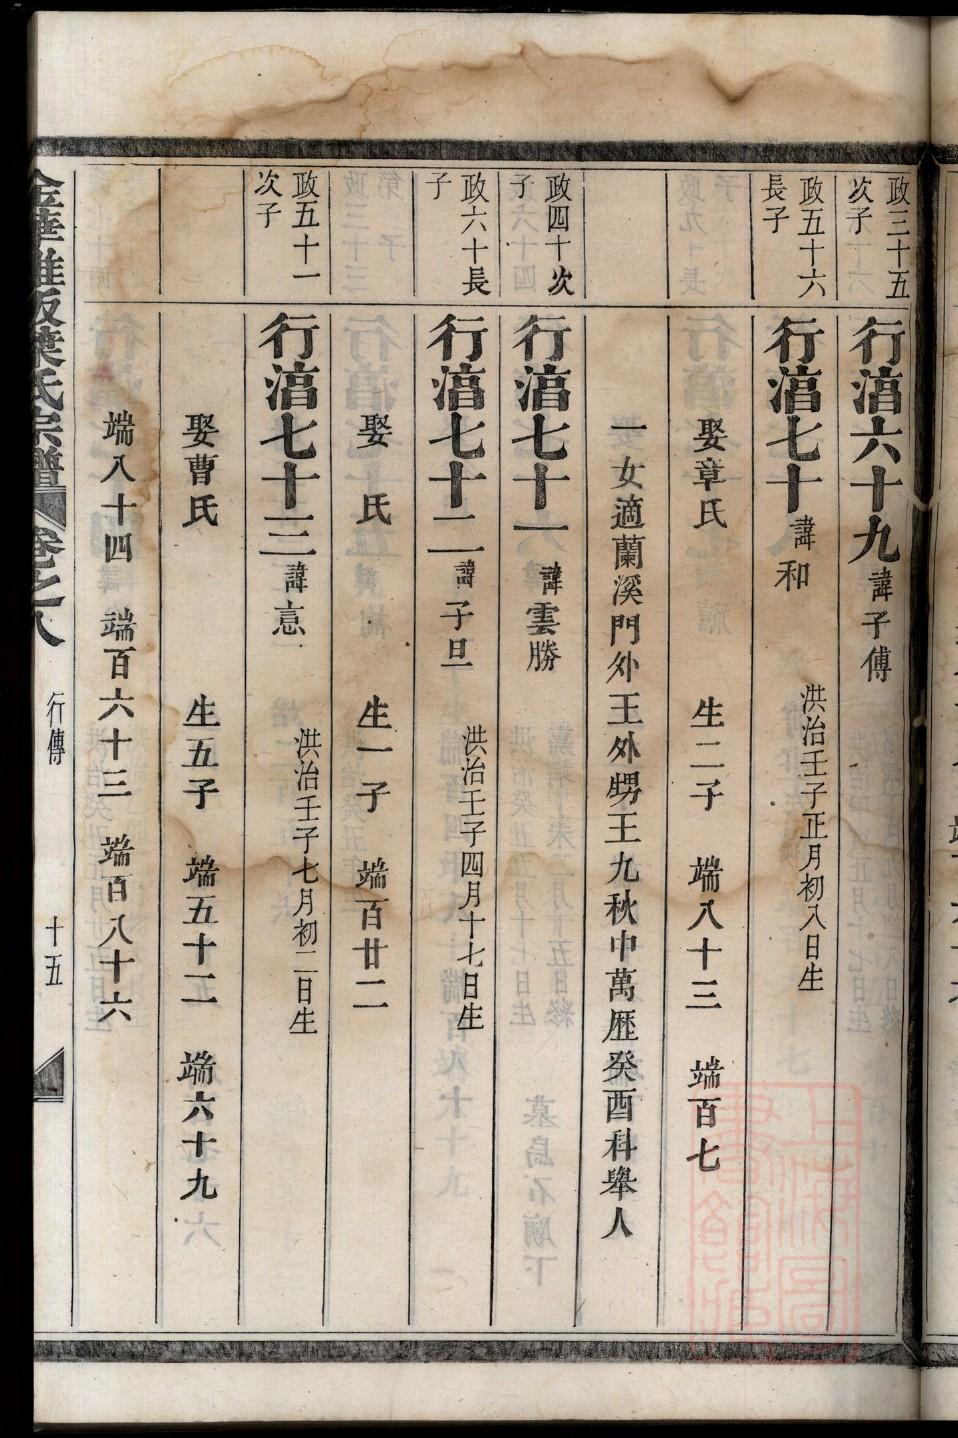 政三十五
次子
行湻六十九 諱子傳
政五十六
長子
行湻七十 諱和 洪治壬子正月初八日生
娶章氏 生二子 端八十三 端百七
一女適蘭溪門外王外甥王九秋中萬歷癸酉科舉人
政四十次
子
行湻七十一 諱雲勝
政六十長
子
行湻七十二 諱子旦 洪治壬子四月十七日生
娶 氏 生一子 端百廿二
政五十一
次子
行湻七十三 諱 洪治壬子七月初二日生
娶曹氏 生五子 端五十二 端六十九
端八十四 端百六十三 端百八十六
金華雅畈葉氏宗譜 卷之八 行傳 十五